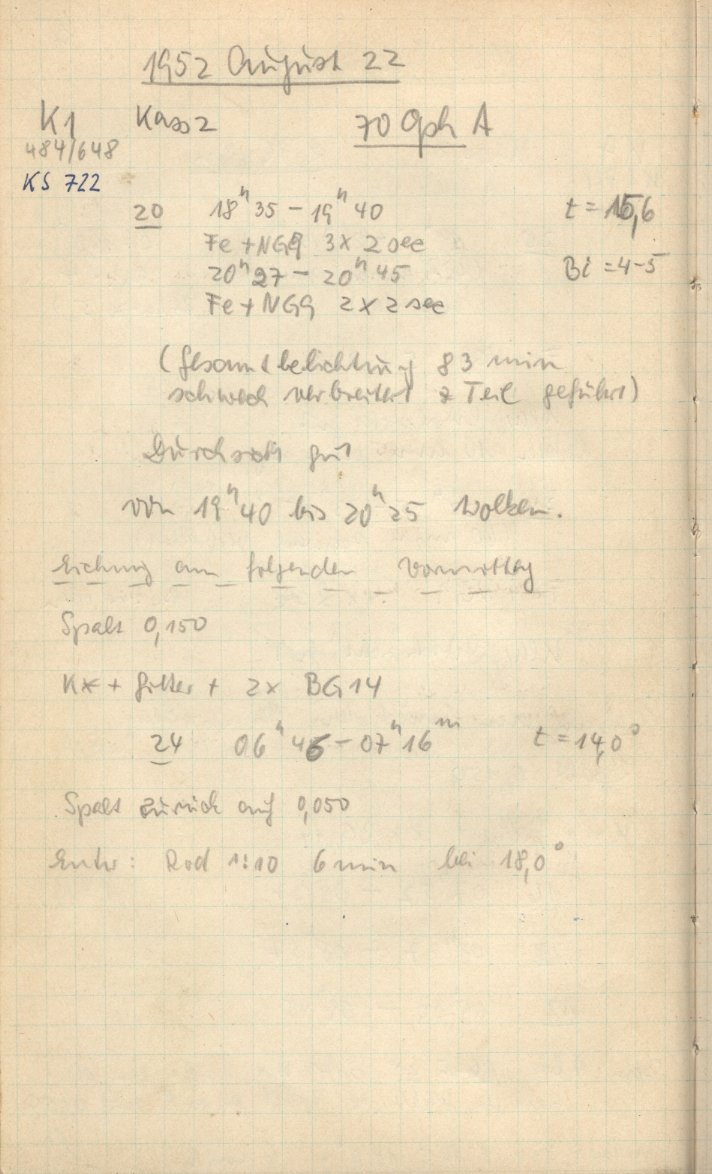 1952 August 22
K1 Kass 2 70 Oph A
484/648
KS 722
20 18ʰ35 – 19ʰ40 t = 15,6
Fe + NG9 3 x 2 sec
20ʰ27 – 20ʰ45 Bi = 4-5
Fe + NG9 2 x 2 sec
(Gesamtbelichtung 83 min
schwach verbreitert z Teil geführt)
Durchsicht gut
von 19ʰ40 bis 20ʰ25 Wolken.
Eichung am folgenden Vormittag
Spalt 0,150
Kx + Gitter + 2x BG14
24 06ʰ46 – 07ʰ16ᵐ t = 14,0°
Spalt zurück auf 0,050
Entw: Rod 1:10 6 min bei 18,0°